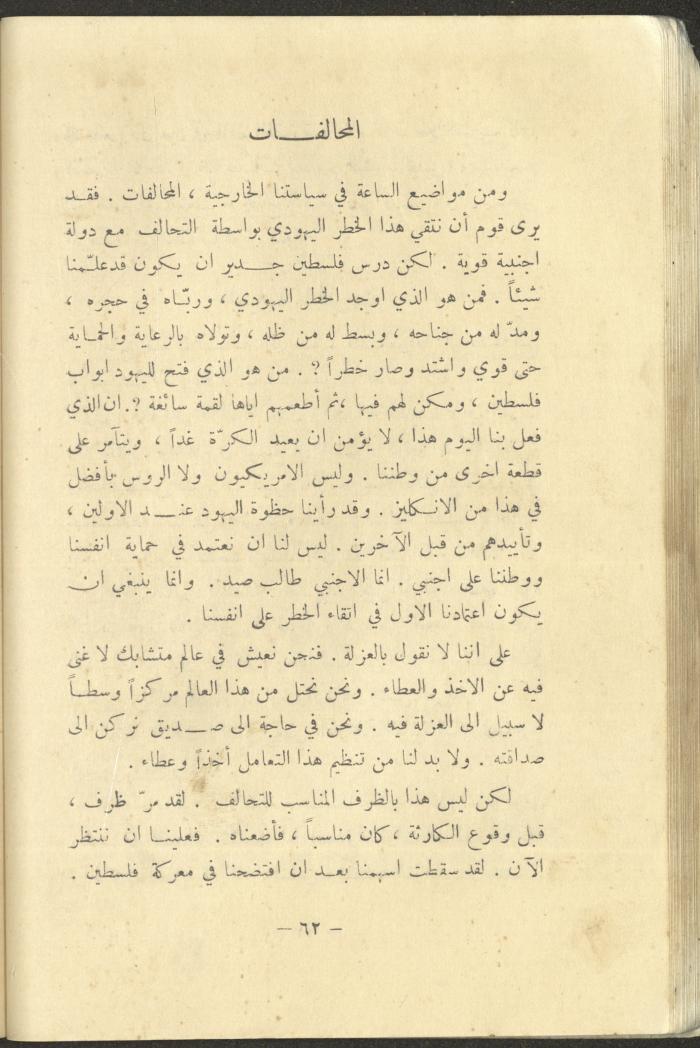 المحالفات
ومن مواضيع الساعة في سياستنا الخارجية ، المحالفات . فقد
يرى قوم أن نتقي هذا الخطر اليهودي بواسطة التحالف مع دولة
اجنبية قوية . لكن درس فلسطين جدير ان يكون قد علّمنا
شيئاً . فمن هو الذي اوجد الخطر اليهودي ، وربّاه في حجره ،
ومدّ له من جناحه ، وبسط له من ظله ، وتولاه بالرعاية والحماية
حتى قوي واشتد وصار خطراً ؟ . من هو الذي فتح لليهود ابواب
فلسطين ، ومكن لهم فيها ،ثم أطعمهم اياها لقمة سائغة ؟. ان الذي
فعل بنا اليوم هذا ، لا يؤمن ان يعيد الكرّة غداً ، ويتآمر على
قطعة اخرى من وطننا . وليس الامريكيون ولا الروس بأفضل
في هذا من الانكليز . وقد رأينا حظوة اليهود عند الاولين ،
وتأييدهم من قبل الآخرين . ليس لنا ان نعتمد في حماية انفسنا
ووطننا على اجنبي . انما الاجنبي طالب صيد . وانما ينبغي ان
يكون اعتمادنا الاول في اتقاء الخطر على انفسنا .
على اننا لا نقول بالعزلة . فنحن نعيش في عالم متشابك لا غنى
فيه عن الاخذ والعطاء . ونحن نحتل من هذا العالم مركزاً وسطاً
لا سبيل الى العزلة فيه . ونحن في حاجة الى صديق نركن الى
صداقته . ولا بد لنا من تنظيم هذا التعامل أخذاً وعطاء .
لكن ليس هذا بالظرف المناسب للتحالف . لقد مرّ ظرف ،
قبل وقوع الكارثة ، كان مناسباً ، فأضعناه . فعلينا ان ننتظر
الآن . لقد سقطت اسهمنا بعد ان افتضحنا في معركة فلسطين .
– ٦٢ –